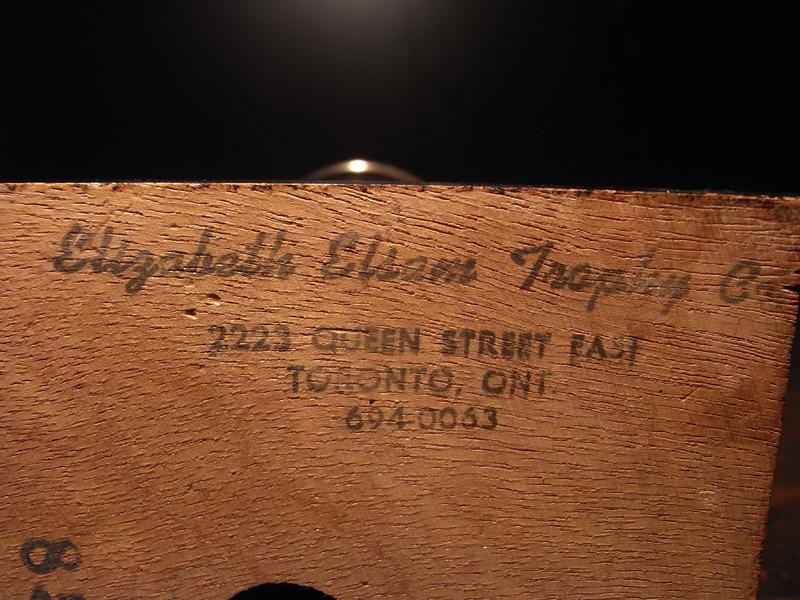 Elizabeth Elsam Trophy Co
2223 QUEEN STREET EAST
TORONTO, ONT.
694-0063
8